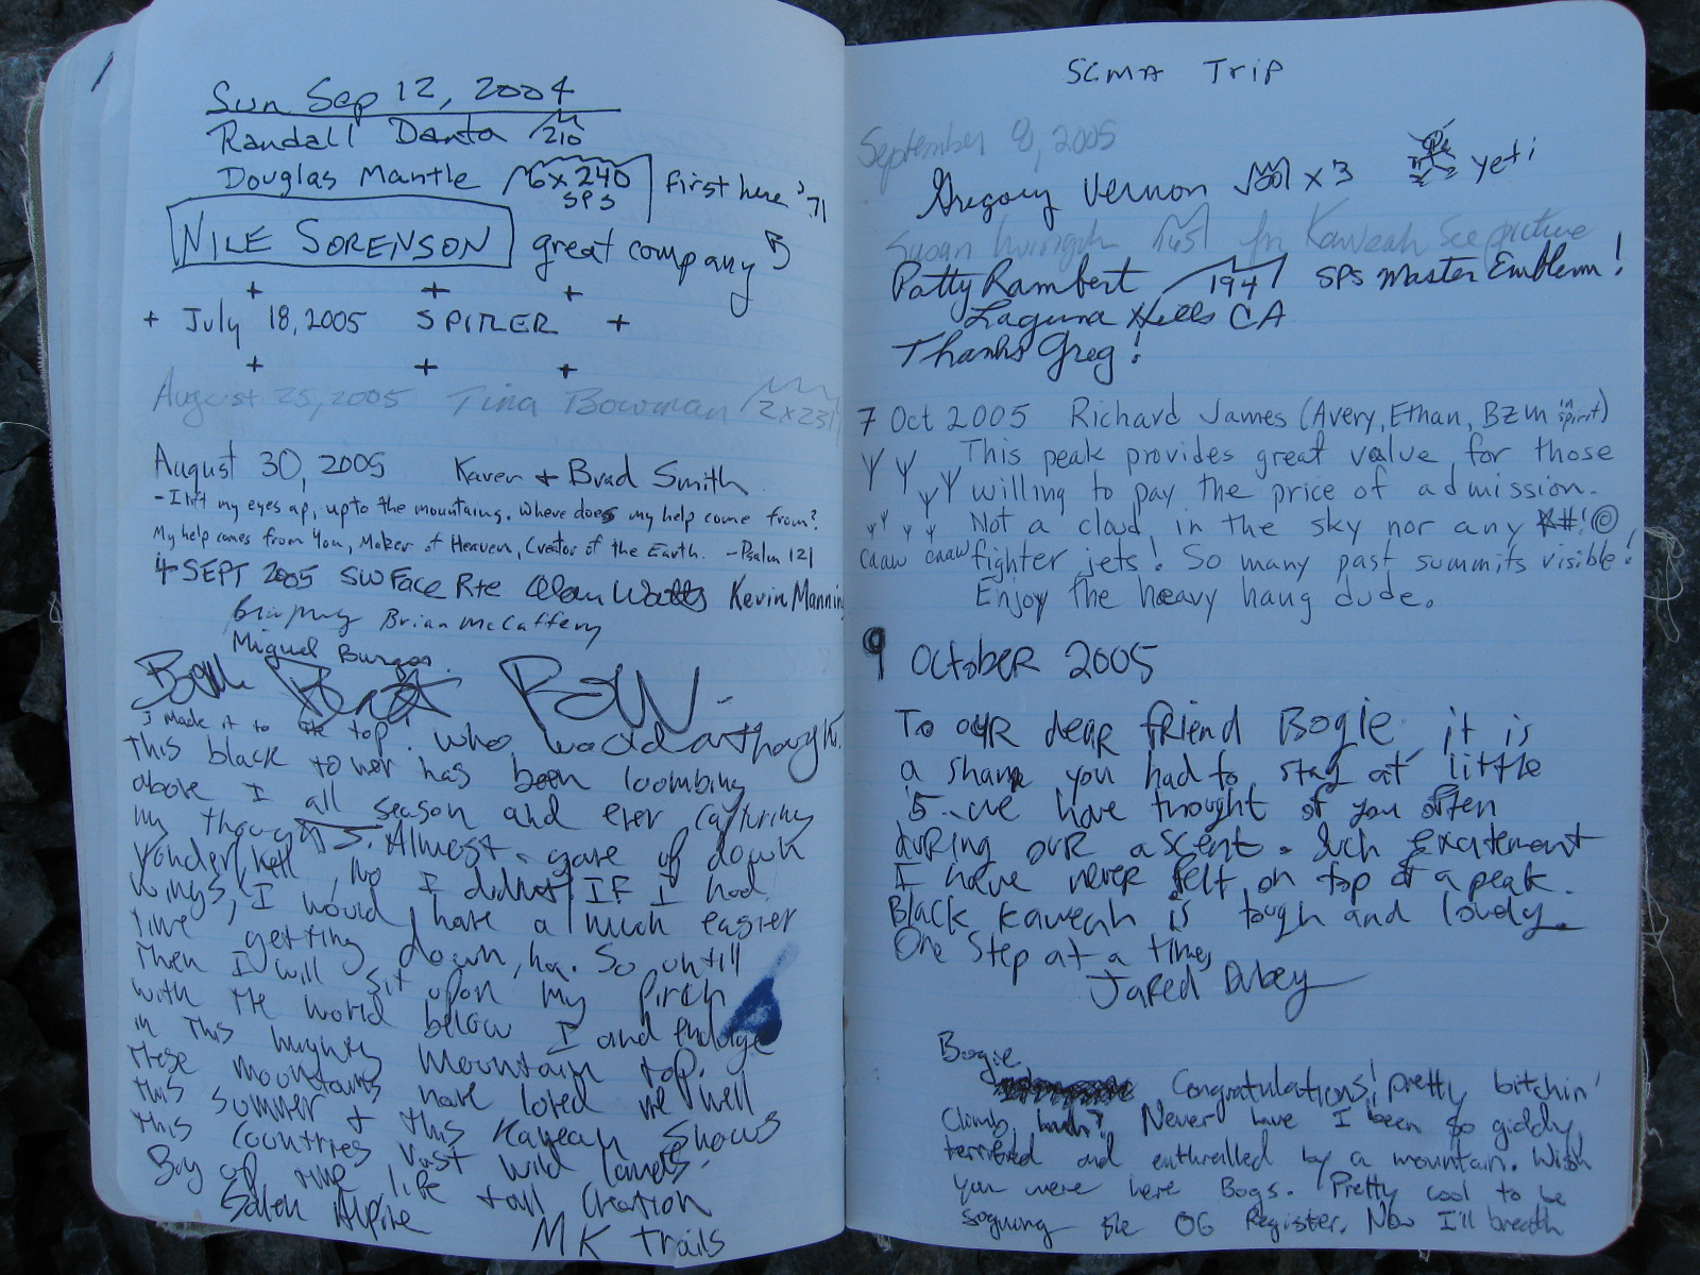 Sun Sep 12, 2004
Randall Danta 210
Douglas Mantle 6x240 SPS first here '71
NILE SORENSON great company
July 18, 2005 SPITLER
August 25, 2005 Tina Bowman 2x231
August 30, 2005 Karen + Brad Smith
- I lift my eyes up, up to the mountains. Where does my help come from?
My help comes from You, Maker of Heaven, Creator of the Earth. - Psalm 121
4 SEPT 2005 SW Face Rte Alan Watts Kevin Mannin
Brian McCaffery
Miguel Burgos.
POW
I made it to the top! who would a thought.
this black tower has been loombing
above I all season and ever capturing
my thoughts. Almost gave up down
yonder, hell no I didnot! IF I had
wings, I would have a much easier
time getting down, ha. So untill
then I will sit upon my pirch
with the world below I and endulge
in this mountain top.
These mountains have loved me well
this summer + this Kaweah shows
this countries vast wild lands.
life + all Creation
MK trails
SCMA Trip
September 8, 2005
Gregory Vernon x 3 yeti
Susan for Kaweah See picture
Patty Rambert 194 SPS Master Emblem!
Laguna Hills CA
Thanks Greg!
7 Oct 2005 Richard James (Avery, Ethan, BZM in spirit)
This peak provides great value for those
willing to pay the price of admission.
Not a cloud in the sky nor any *#!@
caaw caaw fighter jets! So many past summits visible!
Enjoy the heavy hang dude.
9 October 2005
To our dear friend Bogie it is
a shame you had to stay at little
5. we have thought of you often
during our ascent. Such excitement
I have never felt on top of a peak.
Black Kaweah is tough and lovely.
One Step at a time,
Jared Dubey
Bogie
Congratulations! pretty bitchin'
Climb, huh? Never have I been so giddy,
terrified and enthralled by a mountain. Wish
you were here Bogs. Pretty cool to be
signing the OG Register. Now I'll breath